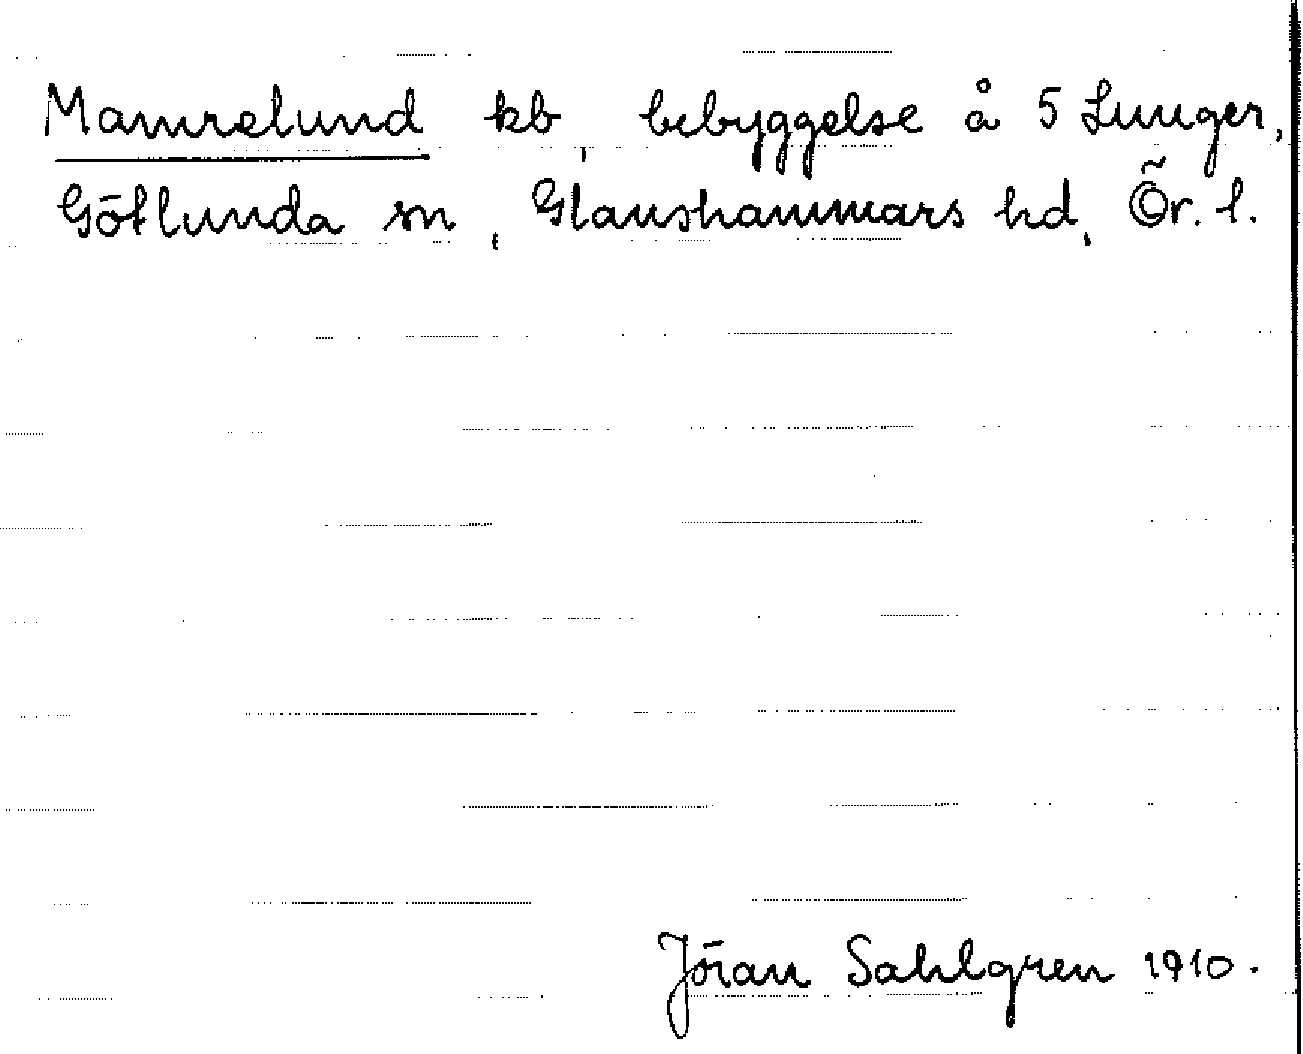 Mamrelund kb, bebyggelse å 5 Lunger,
Götlunda sn, Glanshammars hd, Ör. l.
Jöran Sahlgren 1910.